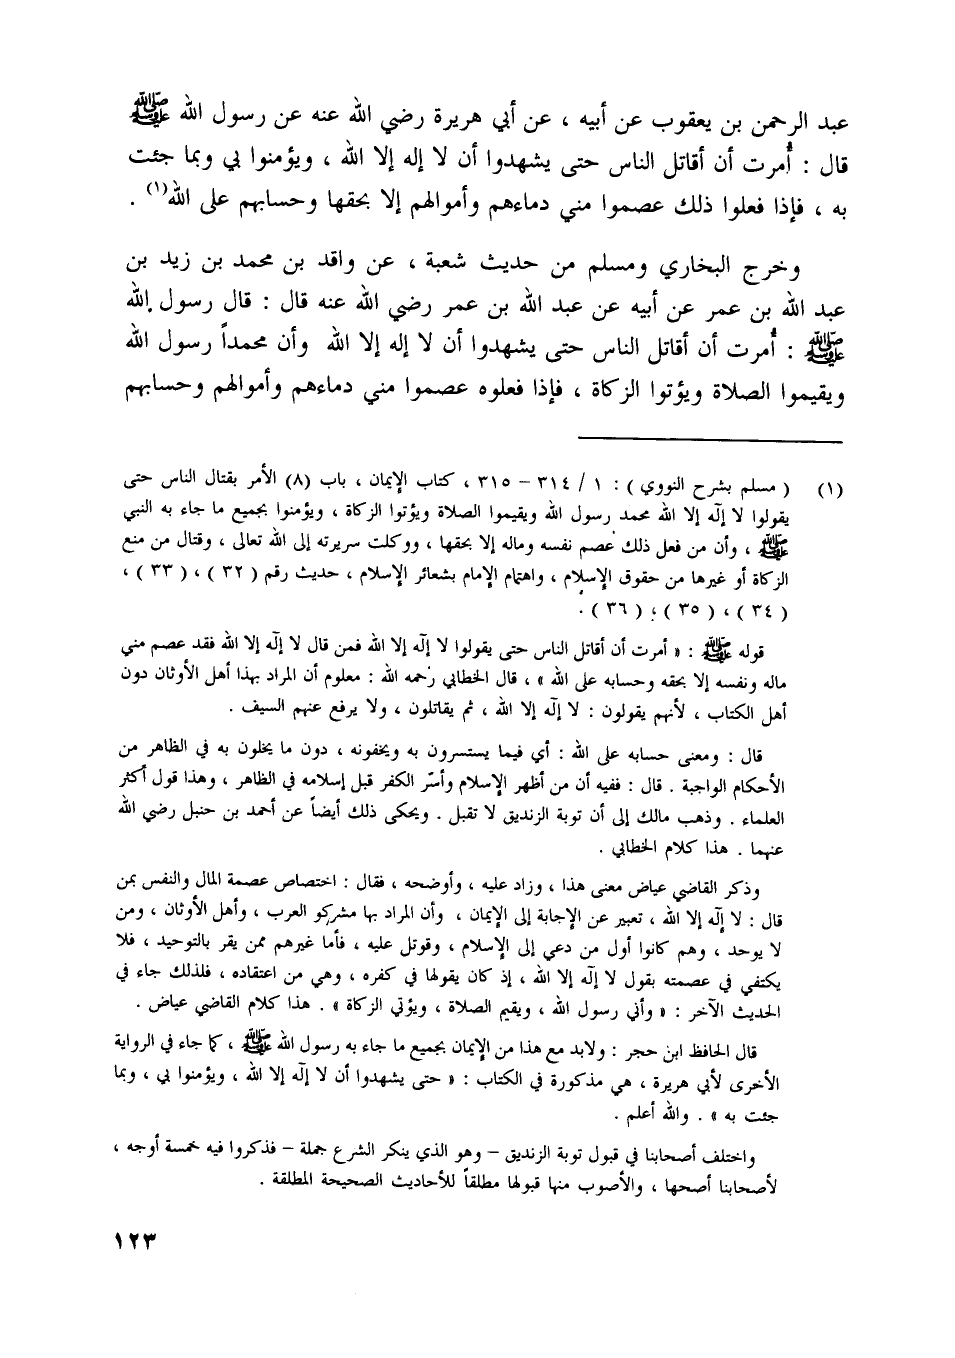 عبد الرحمن بن يعقوب عن أبيه ، عن أبي هريرة رضي الله عنه عن رسول الله ﷺ
قال : أُمرت أن أقاتل الناس حتى يشهدوا أن لا إله إلا الله ، ويؤمنوا بي وبما جئت
به ، فإذا فعلوا ذلك عصموا مني دماءهم وأموالهم إلا بحقها وحسابهم على الله(١) .
وخرج البخاري ومسلم من حديث شعبة ، عن واقد بن محمد بن زيد بن
عبد الله بن عمر عن أبيه عن عبد الله بن عمر رضي الله عنه قال : قال رسول الله
ﷺ : أُمرت أن أقاتل الناس حتى يشهدوا أن لا إله إلا الله وأن محمداً رسول الله
ويقيموا الصلاة ويؤتوا الزكاة ، فإذا فعلوه عصموا مني دماءهم وأموالهم وحسابهم
(١) ( مسلم بشرح النووي ) : ١ / ٣١٤ – ٣١٥ ، كتاب الإيمان ، باب (٨) الأمر بقتال الناس حتى
يقولوا لا إلٓه إلا الله محمد رسول الله ويقيموا الصلاة ويؤتوا الزكاة ، ويؤمنوا بجميع ما جاء به النبي
ﷺ ، وأن من فعل ذلك عصم نفسه وماله إلا بحقها ، ووكلت سريرته إلى الله تعالى ، وقتال من منع
الزكاة أو غيرها من حقوق الإسلام ، واهتمام الإمام بشعائر الإسلام ، حديث رقم ( ٣٢ ) ، ( ٣٣ ) ،
( ٣٤ ) ، ( ٣٥ ) ، ( ٣٦ ) .
قوله ﷺ : « أمرت أن أقاتل الناس حتى يقولوا لا إلٓه إلا الله فمن قال لا إلٓه إلا الله فقد عصم مني
ماله ونفسه إلا بحقه وحسابه على الله » ، قال الخطابي رحمه الله : معلوم أن المراد بهذا أهل الأوثان دون
أهل الكتاب ، لأنهم يقولون : لا إلٓه إلا الله ، ثم يقاتلون ، ولا يرفع عنهم السيف .
قال : ومعنى حسابه على الله : أي فيما يستسرون به ويخفونه ، دون ما يخلون به في الظاهر من
الأحكام الواجبة . قال : ففيه أن من أظهر الإسلام وأسّر الكفر قبل إسلامه في الظاهر ، وهذا قول أكثر
العلماء . وذهب مالك إلى أن توبة الزنديق لا تقبل . ويحكى ذلك أيضاً عن أحمد بن حنبل رضي الله
عنهما . هذا كلام الخطابي .
وذكر القاضي عياض معنى هذا ، وزاد عليه ، وأوضحه ، فقال : اختصاص عصمة المال والنفس بمن
قال : لا إلٓه إلا الله ، تعبير عن الإجابة إلى الإيمان ، وأن المراد بها مشركو العرب ، وأهل الأوثان ، ومن
لا يوحد ، وهم كانوا أول من دعي إلى الإسلام ، وقوتل عليه ، فأما غيرهم ممن يقر بالتوحيد ، فلا
يكتفي في عصمته بقول لا إلٓه إلا الله ، إذ كان يقولها في كفره ، وهي من اعتقاده ، فلذلك جاء في
الحديث الآخر : « وأني رسول الله ، ويقيم الصلاة ، ويؤتي الزكاة » . هذا كلام القاضي عياض .
قال الحافظ ابن حجر : ولابد مع هذا من الإيمان بجميع ما جاء به رسول الله ﷺ ، كما جاء في الرواية
الأخرى لأبي هريرة ، هي مذكورة في الكتاب : « حتى يشهدوا أن لا إلٓه إلا الله ، ويؤمنوا بي ، وبما
جئت به » . والله أعلم .
واختلف أصحابنا في قبول توبة الزنديق – وهو الذي ينكر الشرع جملة – فذكروا فيه خمسة أوجه ،
لأصحابنا أصحها ، والأصوب منها قبولها مطلقاً للأحاديث الصحيحة المطلقة .
١٢٣